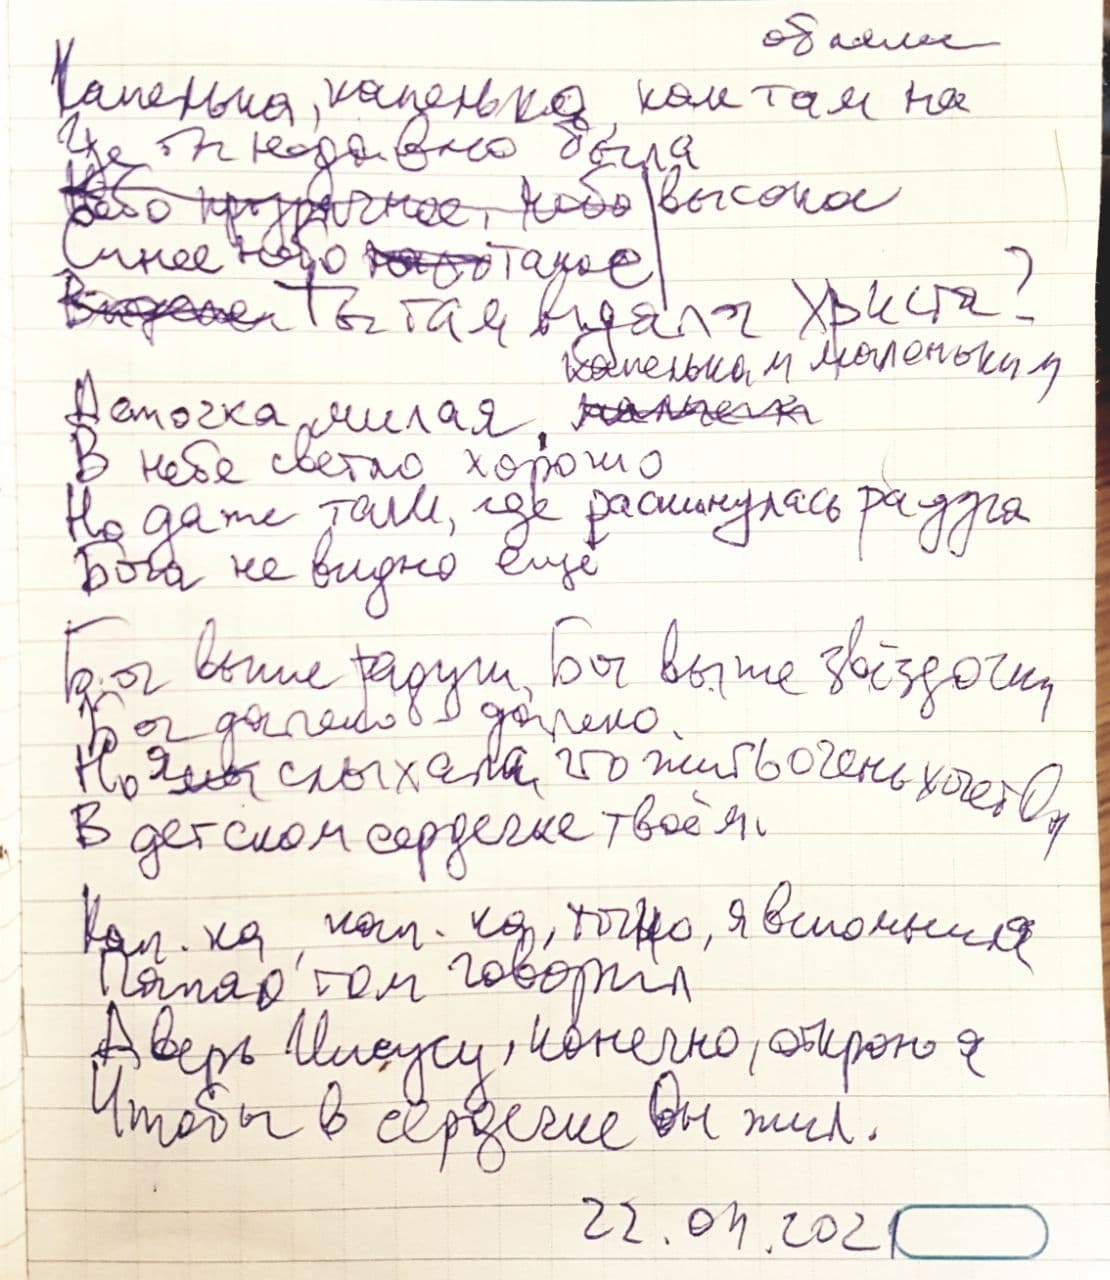 облаке
Капенька, капенька, как там на
Где ты недавно была
Небо прозрачное, небо высокое
Синее небо такое
Ты там видала Христа?
капенькам маленьким
Деточка милая,
В небе светло хорошо
Но даже там, где раскинулась радуга
Бога не видно ещё
Бог выше радуги, Бог выше звёздочки
Бог далеко - далеко.
Но я слыхала, что жить очень хочет Он
В детском сердечке твоём.
Кап. ка, кап. ка, точно, я вспомнила
Папа о том говорил
Дверь Иисусу, конечно, открою я
Чтобы в сердечке Он жил.
22.04.2021